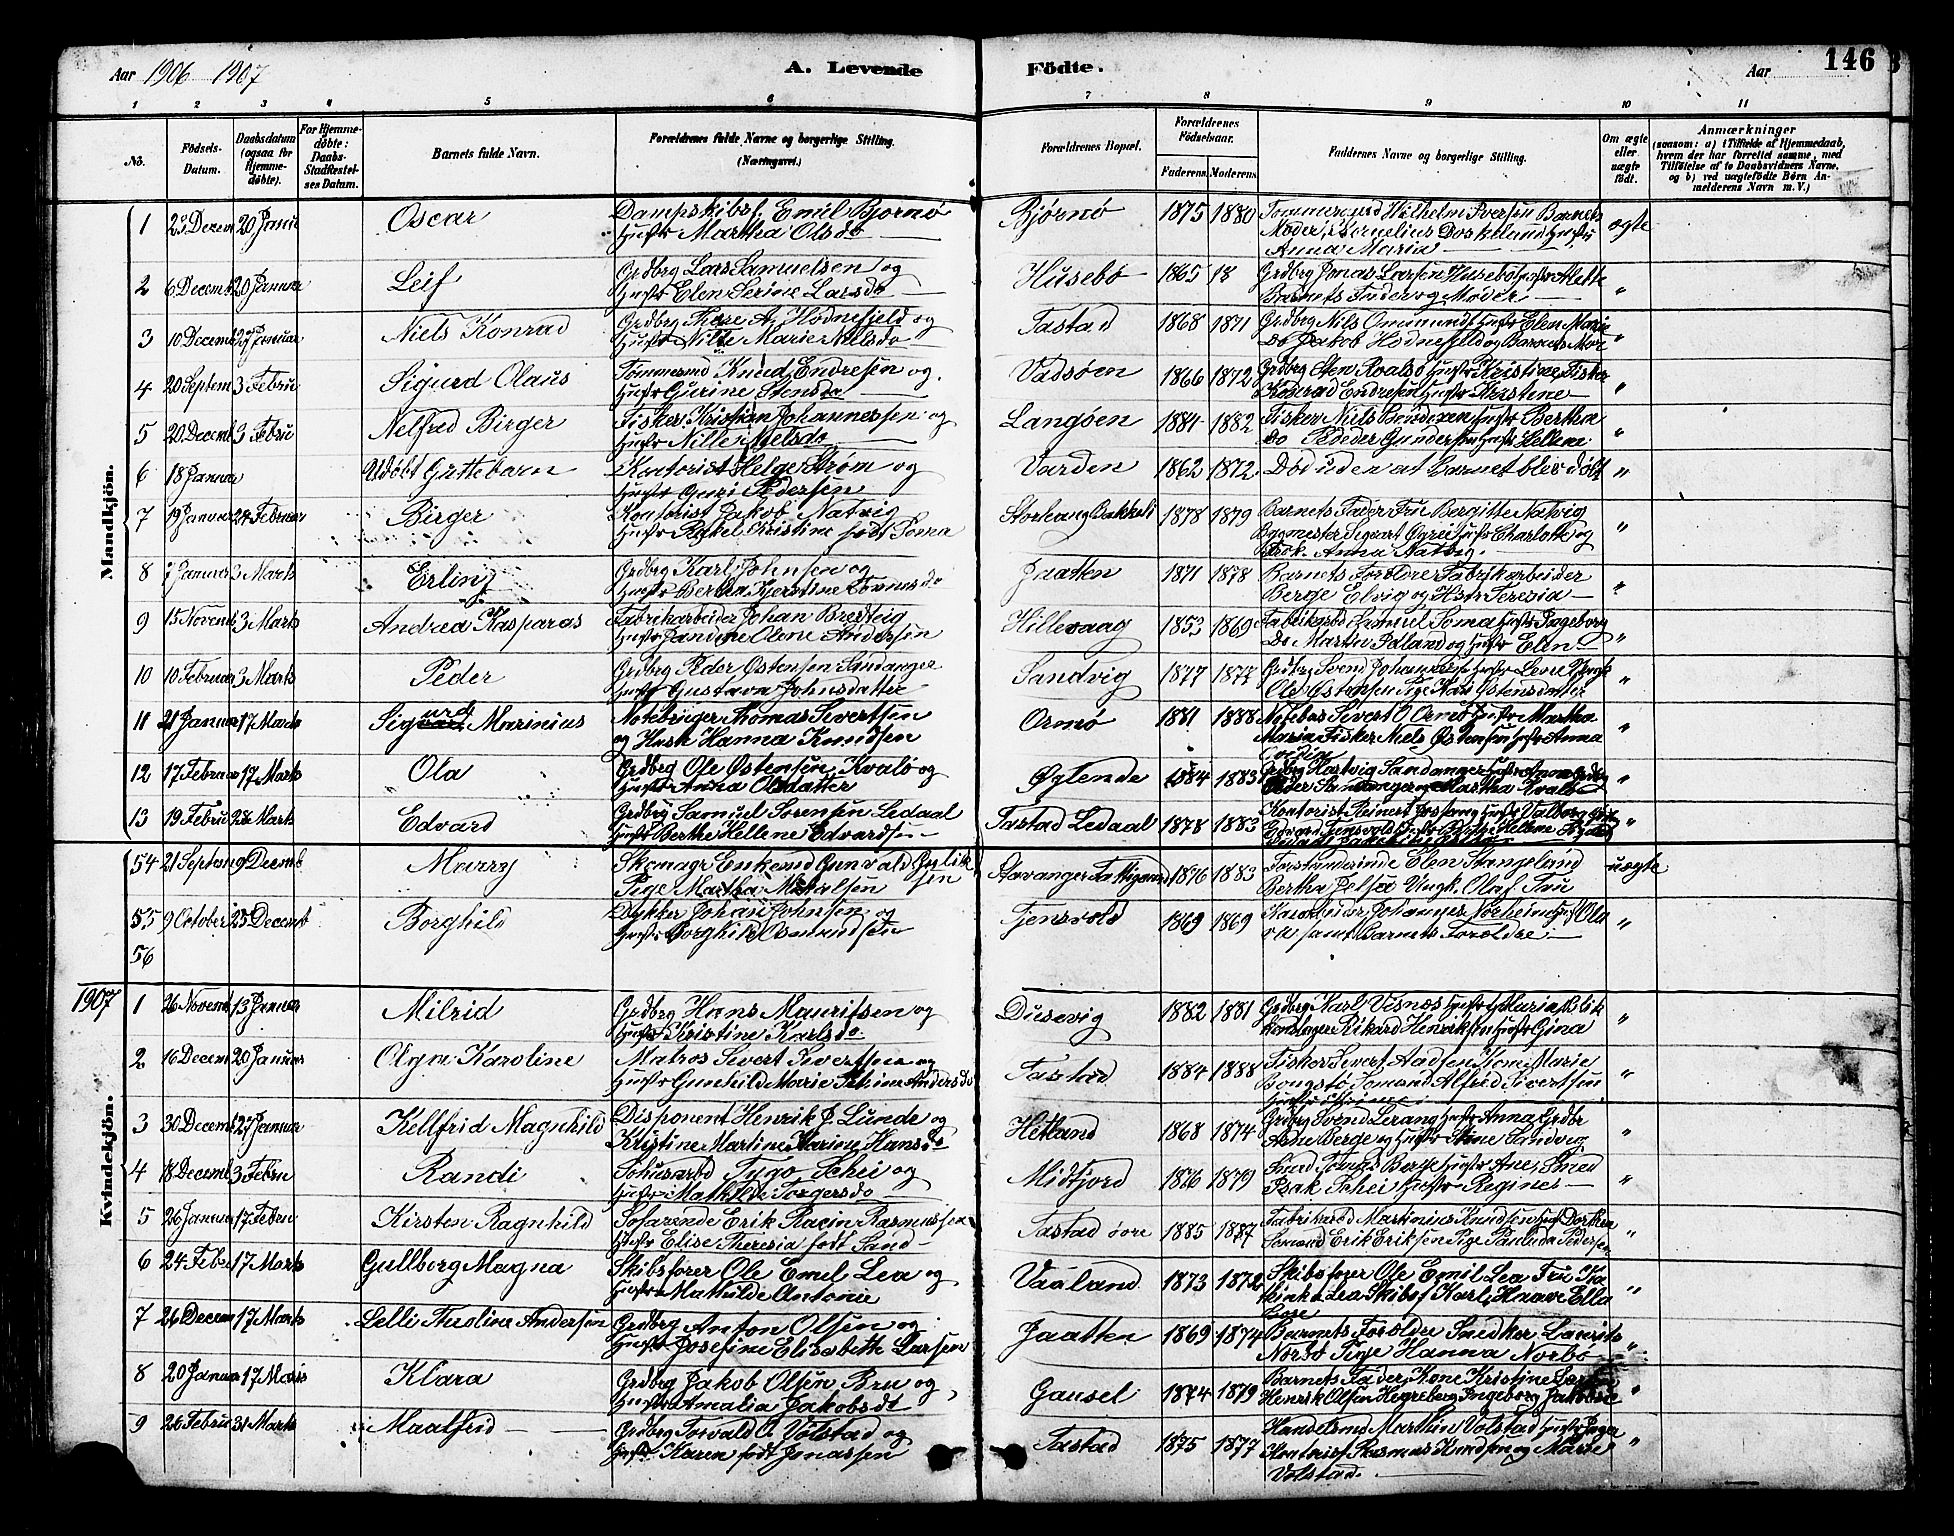 Aar 1906 1907
A. Levende Födte.
Aar
146
1 2 3 4 5 6 7 8 9 10 11
No.
Födsels-Datum.
Daabsdatum (ogsaa for Hjemme-døbte).
For Hjemme-døbte: Daabs-Stadfæstel-ses Datum.
Barnets fulde Navn.
Forældrenes fulde Navne og borgerlige Stilling. (Næringsvei.)
Forældrenes Bopæl.
Forældrenes Födselsaar.
Faderens Moderens
Faddernes Navne og borgerlige Stilling.
Om ægte eller uægte født.
Anmærkninger
(saasom: a) i Tilfælde af Hjemmedaab, hvem der har forrettet samme, med Tilføielse af to Daabsvidners Navne, og b) ved uægtefödte Börn An-melderens Navn m. V.)
Mandkjön.
1 25 Decem 20 Januar Oscar Dampskibsf. Emil Bjornö Hustr Martha Olsdo Bjørnø 1875 1880 Tømmermd Wilhelm Iversen Barnets Moder, Kornelius Daskeland Hustr Anna Maria ægte
2 6 Decemb 20 Januar Leif Grdbrg Lars Samuelsen og Hustr Elen Serine Larsdo Husebö 1865 18 Grdbrg Jonas Larsen Husebö Hustr Alette Barnets Fader og Moder "
3 10 Decemb 27 Januar Niels Konrad Grdbrg Thore A. Hodnefjeld og Hustr Nille Marie Nielsdo Tastad 1868 1871 Grdbrg Nils Ommundt Hustr Elen Marie Do Jakob Hodnefjeld og Barnets Mor "
4 20 Septem 3 Febru Sigurd Olaus Tømmermd Knud Endresen og Hustr Gurine Stensdo Vadsöen 1866 1872 Grdbrg Sten Roalsö Hustr Kristine, Fisker Konrad Endresen Hustr Kirstene "
5 20 Decemb 3 Febru Nelfred Birger Fisker Kristian Johannessen og Hustr Nille Nielsdo Langöen 1881 1882 Fisker Niels Bendixen Hustr Bertha Do Peder Gundersen Hustr Hellene "
6 18 Januar Udöbt Guttebarn Kontorist Helge Ström og Hustr Guri Pedersen Varden 1862 1872 Död uden at Barnet blev döbt "
7 19 Januar 24 Februar Birger Kontorist Jakob Natvig Hustr Rakel Kristine født Soma Storhaug Bakkeli 1878 1879 Barnets Fader Fru Bergitte Natvig Bygmester Sigvart Hustr Charlotte og Frøk. Anna Natvig "
8 7 Januar 3 Marts Erling Grdbrg Karl Johnsen og Hustr Bertha Kjerstine Jaatten 1871 1878 Barnets Forældre Fabrikarbeider Berge Elvig og Hstr Teresia "
9 15 Novemb 3 Marts Andrea Kasparas Fabrikarbeider Johan Bredvig Hustr Jandine Olene Andersen Hillevaag 1853 1869 Fabriksrbd Samuel Soma Hustr Ingeborg Do Martin Idland og Hustr Elen "
10 10 Februar 3 Marts Peder Grdbrg Peder Østensen Sandanger Hustr Gustava Johnsdatter Sandvig 1877 1877 Grdbrg Svend Johannesen Hustr Lene Ole Østensen Pige Kari Østensdatter "
11 21 Januar 17 Marts Sigurd Marinius Notebringer Thomas Sivertsen og Hustr Hanna Knudsen Ormö 1881 1888 Notebas Sivert O Ormö Hustr Martha Maria Fisker Niels Østensen Hustr Anna "
12 17 Februar 17 Marts Ola Grdbrg Ole Østensen Kvalö og Hustr Anna Olsdatter Øglende 1884 1883 Grdbrg Hartvig Sandanger Hustr Anna Martha Kvalö "
13 19 Febru 28 Marts Edvard Grdbrg Samuel Sørensen Ledaal Hustr Berthe Hellene Edvardsen Tastad Ledaal 1878 1883 Kontorist Reinert Hustr Valborg Edvard Tjensvold Hustr Berthe Helene "
54 21 Septem 9 Decemb Marry Skomagr Enkemd Gunvald Pige Martha Mikalsen Stavanger Fattiggaard 1876 1883 Forstanderinde Elen Stangeland Bertha Jelsa Ungk. Olaf Tau uægte
55 9 October 25 Decemb Borghild Dykker Johan Johnsen og Hustr Borghild Osmundsen Tjensvold 1869 1869 Johannes Norheim samt Barnets Forældre "
56
1907
Kvindekjön.
1 26 Novemb 13 Januar Milrid Grdbrg Hans Mauritsen og Hustr Kristine Karlsdo Dusevig 1882 1881 Grdbrg Karl Visnes Hustr Maria Rikard Henriksen Hustr Gina "
2 16 Decem 20 Januar Olga Karoline Matros Sivert Sivertsen og Hustr Gunhild Marie Andersdo Tastad 1884 1888 Fisker Sivert Aadsen Kone Marie Sømand Alfred Sivertsen "
3 30 Decemb 27 Januar Kellfrid Magnhild Disponent Henrik J. Lunde og Kristine Martine Karine Hansdo Hetland 1868 1874 Grdbrg Svend Lerang Hustr Anna Grdbr Berge og Hustr Stine Sandvig "
4 18 Decemb 3 Febru Randi Tygo Schei og Hustr Mathilde Torgersdo Midtfjord 1876 1879 Smed Tomas Berge Hustr Ane, Smed Isak Schei Hustr Regine "
5 26 Januar 17 Febru Kirsten Ragnhild Søfarende Erik Racin Rasmussen Hustr Elise Theresia født Sand Tastad övre 1885 1887 Fabrikarbd Martinius Knudsen Hust Dorthea Sømand Erik Eriksen Pige Paulida Pedersen "
6 24 Febr 17 Marts Gullborg Magna Skibsforer Ole Emil Lea og Hustr Mathilde Antonie Vaaland 1873 1872 Skibsforer Ole Emil Lea Fru Lea Skibsf Karl Haave Ella "
7 26 Decem 17 Marts Lelli Theoline Andersen Grdbrg Anton Olsen og Hustr Josefine Elisabeth Larsen Jaatten 1869 1874 Barnets Forældre Snedker Laurits Norbö Pige Hanna Norbö "
8 20 Januar 17 Marts Klara Grdbrg Jakob Olsen Bru og Hustr Amalia Jakobsdt Gausel 1874 1879 Barnets Fader, Kone Kristine Larsen Henrik Olsen Hegreberg Ingeborg Jakobsen "
9 26 Febru 31 Marts Maalfrid Grdbrg Torvald O. Volstad og Hustr Karen født Jonassen Tastad 1875 1877 Handelsmd Marthin Volstad Hustr Inga Kontorist Rasmus Knudsen og Marie Volstad. "